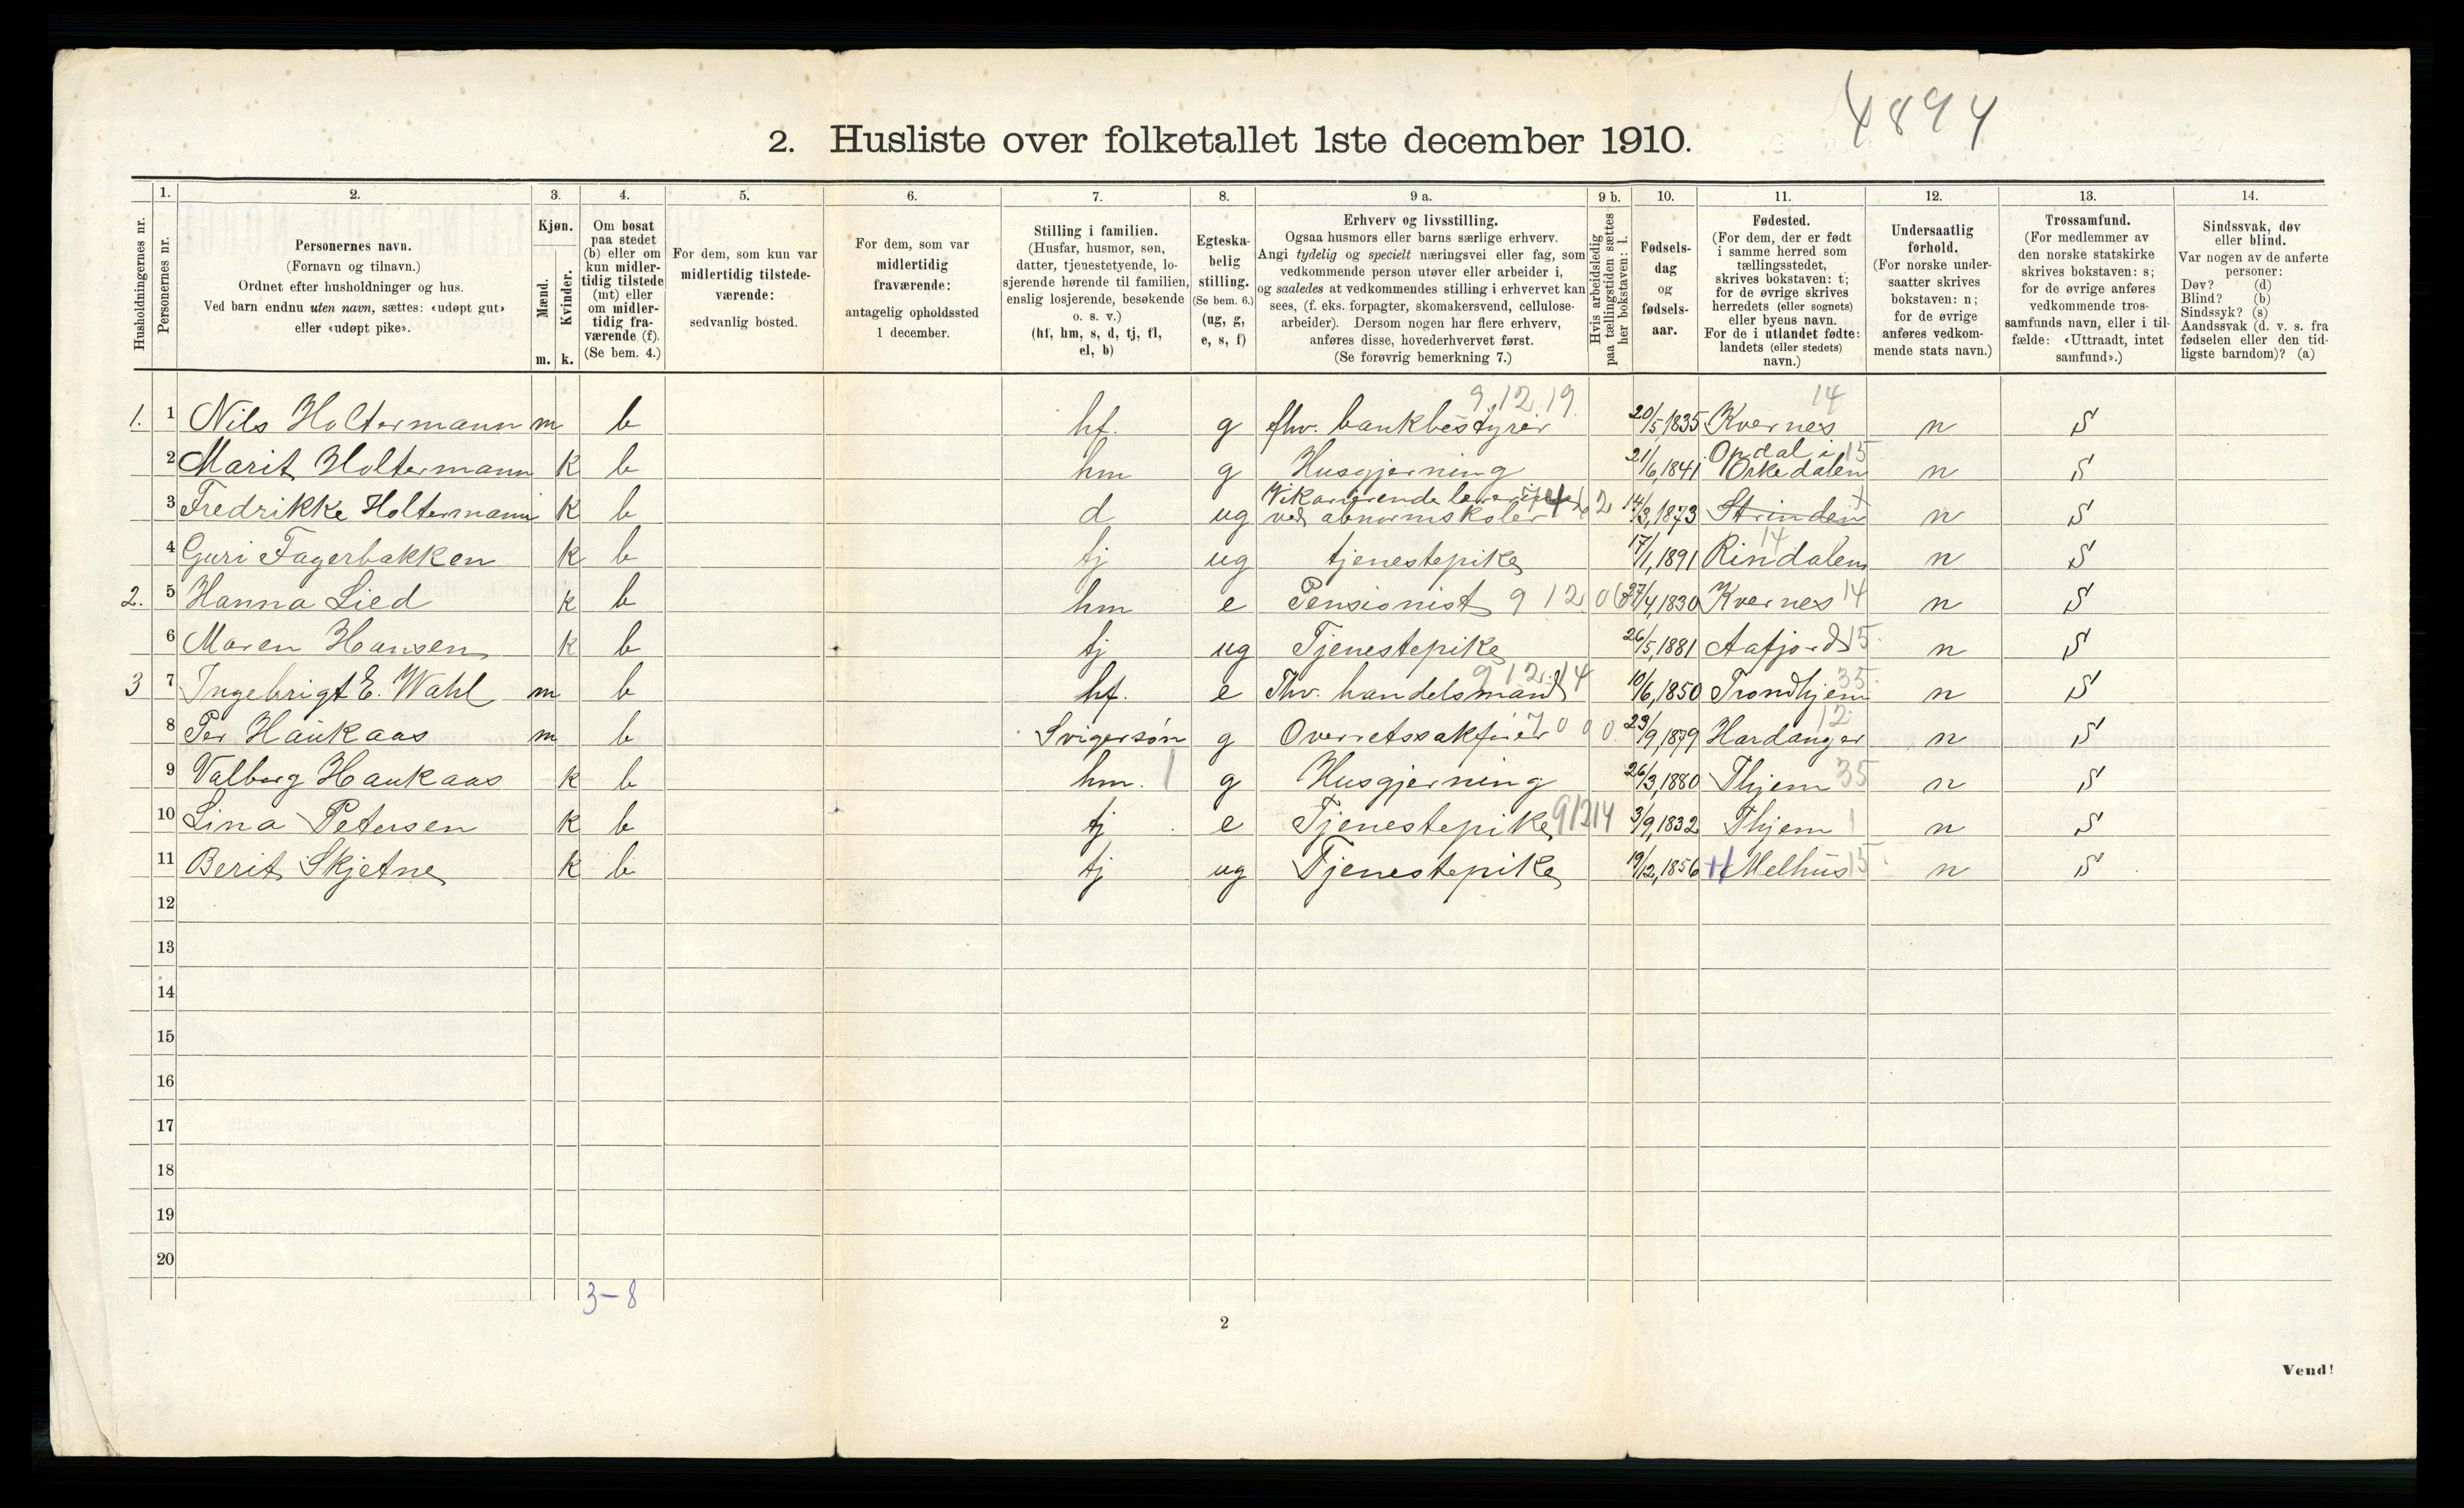 4894
2. Husliste over folketallet 1ste december 1910.
Husholdningernes nr.
1. Personernes nr.
2.
Personernes navn.
(Fornavn og tilnavn.)
Ordnet efter husholdninger og hus.
Ved barn endnu uten navn, sættes: «udøpt gut»
eller «udøpt pike».
3.
Kjøn.
Mænd. Kvinder.
m. k.
4.
Om bosat
paa stedet
(b) eller om
kun midler-
tidig tilstede
(mt) eller
om midler-
tidig fra-
værende (f).
(Se bem. 4.)
5.
For dem, som kun var
midlertidig tilstede-
værende:
sedvanlig bosted.
6.
For dem, som var
midlertidig
fraværende:
antagelig opholdssted
1 december.
7.
Stilling i familien.
(Husfar, husmor, søn,
datter, tjenestetyende, lo-
sjerende hørende til familien,
enslig losjerende, besøkende
o. s. v.)
(hf, hm, s, d, tj, fl,
el, b)
8.
Egteska-
belig
stilling.
(Se bem. 6.)
(ug, g,
e, s, f)
9 a.
Erhverv og livsstilling.
Ogsaa husmors eller barns særlige erhverv.
Angi tydelig og specielt næringsvei eller fag, som
vedkommende person utøver eller arbeider i,
og saaledes at vedkommendes stilling i erhvervet kan
sees, (f. eks. forpagter, skomakersvend, cellulose-
arbeider). Dersom nogen har flere erhverv,
anføres disse, hovederhvervet først.
(Se forøvrig bemerkning 7.)
9 b.
Hvis arbeidsledig
paa tællingstiden sættes
her bokstaven: l.
10.
Fødsels-
dag
og
fødsels-
aar.
11.
Fødested.
(For dem, der er født
i samme herred som
tællingsstedet,
skrives bokstaven: t;
for de øvrige skrives
herredets (eller sognets)
eller byens navn.
For de i utlandet fødte:
landets (eller stedets)
navn.)
12.
Undersaatlig
forhold.
(For norske under-
saatter skrives
bokstaven: n;
for de øvrige
anføres vedkom-
mende stats navn.)
13.
Trossamfund.
(For medlemmer av
den norske statskirke
skrives bokstaven: s;
for de øvrige anføres
vedkommende tros-
samfunds navn, eller i til-
fælde: «Uttraadt, intet
samfund».)
14.
Sindssvak, døv
eller blind.
Var nogen av de anførte
personer:
Døv? (d)
Blind? (b)
Sindssyk? (s)
Aandssvak (d. v. s. fra
fødselen eller den tid-
ligste barndom)? (a)
9.12.19. 14
1. 1 Nils Holtermann m b hf. g fhv. bankbestyrer 20/5,1835 Kvernes n S
2 Marit Holtermann k b hm g Husgjerning 21/6,1841 Opdal i Orkedalen 15 n S
3 Fredrikke Holtermann k b d ug Vikarierende lærerinde ved abnormskoler 2 14/3,1873 Strinden t n S
4 Guri Fagerbakken k b tj ug tjenestepike 17/1,1891 Rindalen 14 n S
2. 5 Hanna Lied k b hm e Pensionist 9 12 06 27/4,1830 Kvernes 14 n S
6 Maren Hansen k b tj ug Tjenestepike 26/5,1881 Aafjord 15 n S
3 7 Ingebrigt E. Wahl m b hf. e Fhv. handelsmand 9 12.14 10/6,1850 Trondhjem 35 n S
8 Per Haukaas m b Svigersøn g Overretssakfører 7000 29/9,1879 Hardanger 12 n S
9 Valborg Haukaas k b hm. 1 g Husgjerning 26/3,1880 Thjem 35 n S
10 Lina Petersen k b tj e Tjenestepike 91214 3/9,1832 Thjem n S
11 Berit Skjetne k b tj ug Tjenestepike 19/2,1856 Melhus 15 n S
12
13
14
15
16
17
18
19
20
3-8
2
Vend!